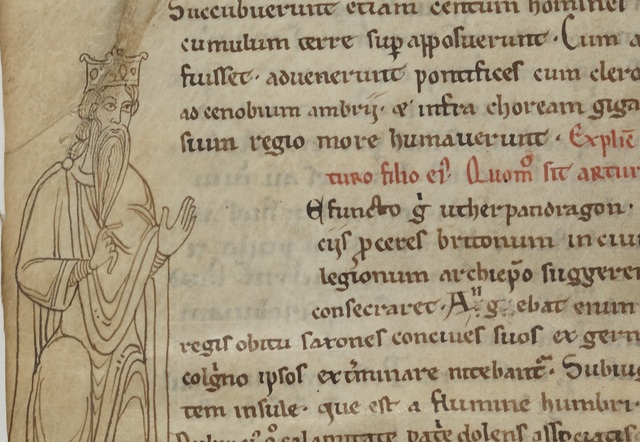 Succubuerunt etiam centum homines
cumulum terre sup̱ apposuerunt. Cum a
fuisset. aduenerunt pontifices cum clero
ad cenobium ambrij. & infra choream giga
suum regio more humauerunt. Explic̄
turo filio ei᷒. Quom̊ sit artur
Efuncto g̊ utherpandragon.
ciis ꝓceres britonum in ciui
legionum archiep̄o suggere
consecraret. A g ebat enim
regis obitu saxones conciues suos ex germ
colgͥno ipsos ext̓minare nitebant᷑. Subiug
tem insule. que est a flumine humbri
calamitate pat̓e dolens associatis